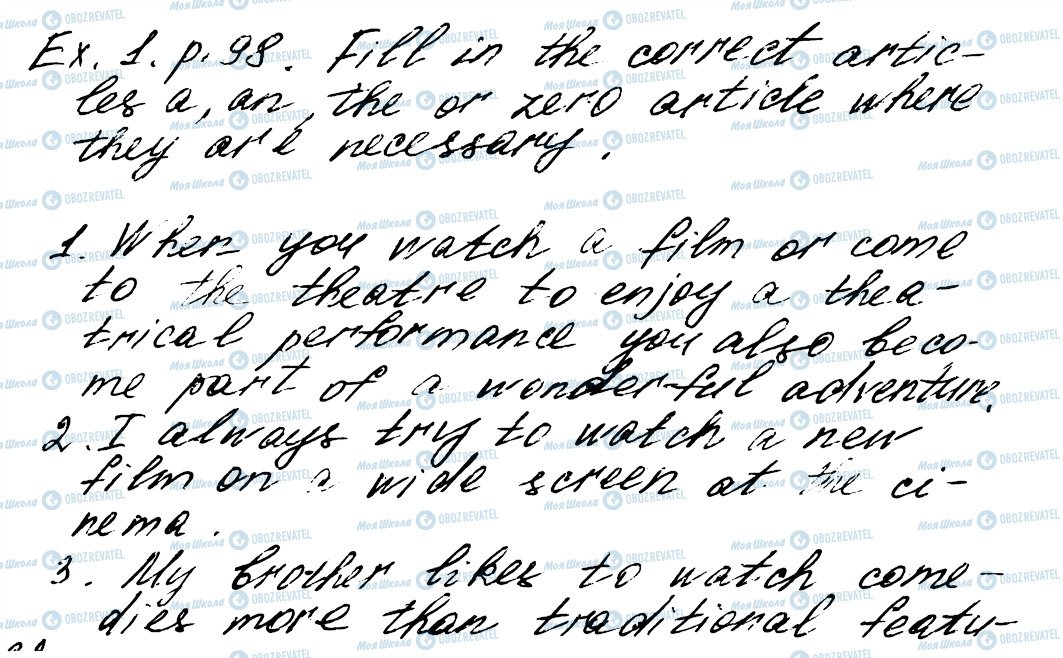 Ex. 1. p. 98. Fill in the correct artic-
les a, an, the or zero article where
they are necessary.
1. When you watch a film or come
to the theatre to enjoy a thea-
trical performance you also beco-
me part of a wonderful adventure.
2. I always try to watch a new
film on a wide screen at the ci-
nema.
3. My brother likes to watch come-
dies more than traditional featu-